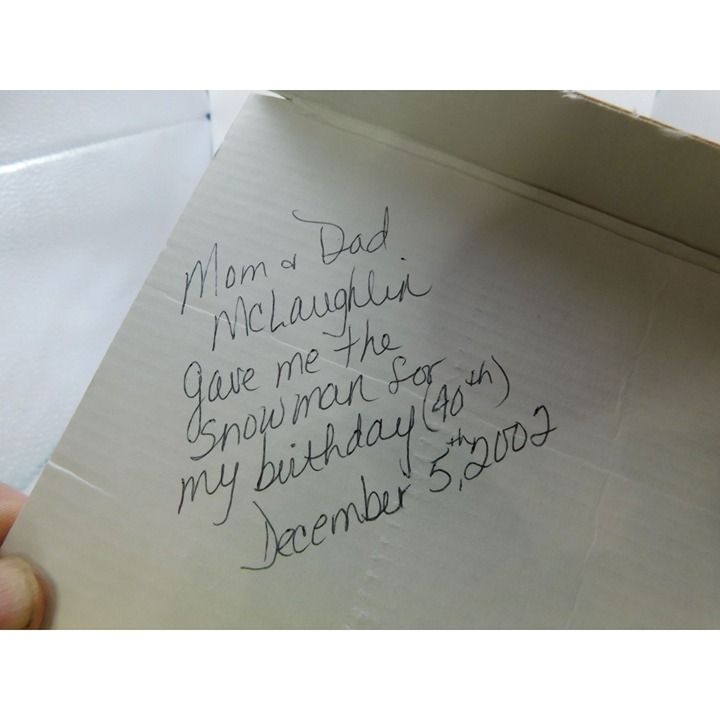 Mom & Dad
McLaughlin
gave me the
Snowman for
my birthday (40th)
December 5th, 2002